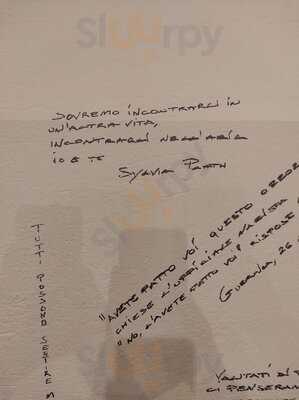 Sluurpy
DOVREMO INCONTRARCI IN
UN'ALTRA VITA,
INCONTRARCI NELL'ARIA
IO E TE
SYLVIA PLATH
"AVETE FATTO VOI QUESTO ORRORE
CHIESE L'UFFICIALE NAZISTA
"NO, L'AVETE FATTO VOI" RISPOSE
GUERNICA, 26
TUTTI POSSONO SENTIRE
VANTATI DI
CI PENSERAN